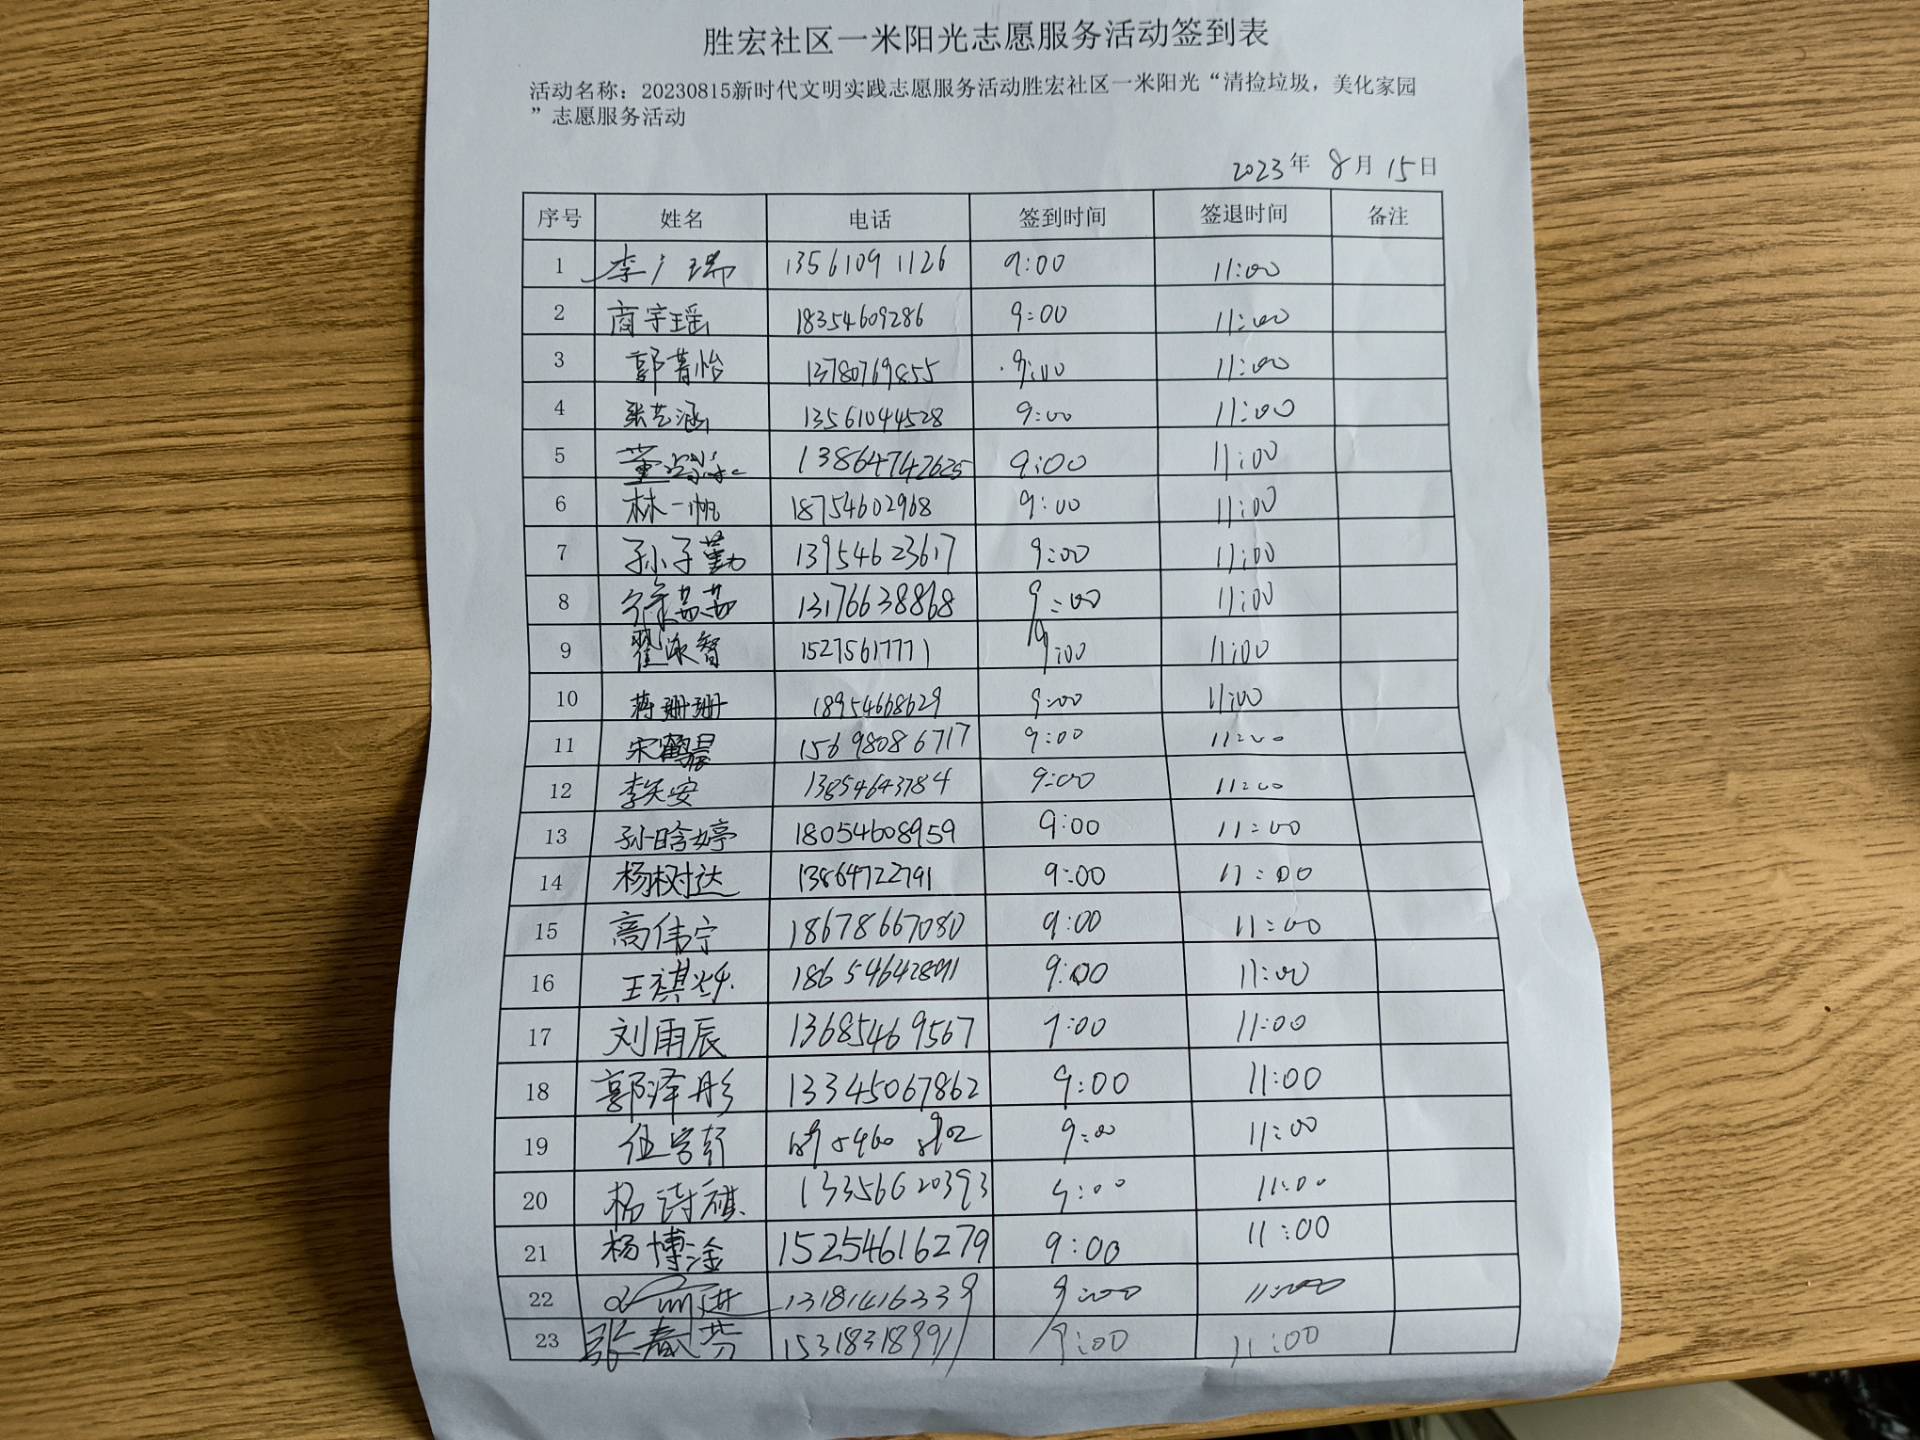 胜宏社区一米阳光志愿服务活动签到表
活动名称：20230815新时代文明实践志愿服务活动胜宏社区一米阳光“清捡垃圾，美化家园
”志愿服务活动
2023年 8月 15日
序号 姓名 电话 签到时间 签退时间 备注
1 李广瑞 13561091126 9:00 11:00
2 商宇瑶 18354609286 9:00 11:00
3 郭菁怡 13780769855 9:00 11:00
4 张艺涵 13561044528 9:00 11:00
5 董 13864742625 9:00 11:00
6 林一帆 18754602968 9:00 11:00
7 孙子勤 13954623617 9:00 11:00
8 徐茹茹 13176638868 9:00 11:00
9 翟泳智 15275617771 9:00 11:00
10 蒋珊珊 18954668629 9:00 11:00
11 宋鹤晨 15698086717 9:00 11:00
12 李矢安 13854643784 9:00 11:00
13 孙晗婷 18054608959 9:00 11:00
14 杨树达 13864722791 9:00 11:00
15 高伟宁 18678667080 9:00 11:00
16 王祺烁 9:00 11:00
17 刘雨辰 13685469567 9:00 11:00
18 郭泽彤 13345067862 9:00 11:00
19 伍学轩 9:00 11:00
20 杨诗祺 13356620393 9:00 11:00
21 杨博淦 15254616279 9:00 11:00
22 13181416339 9:00 11:00
23 张春芬 15318318991 9:00 11:00